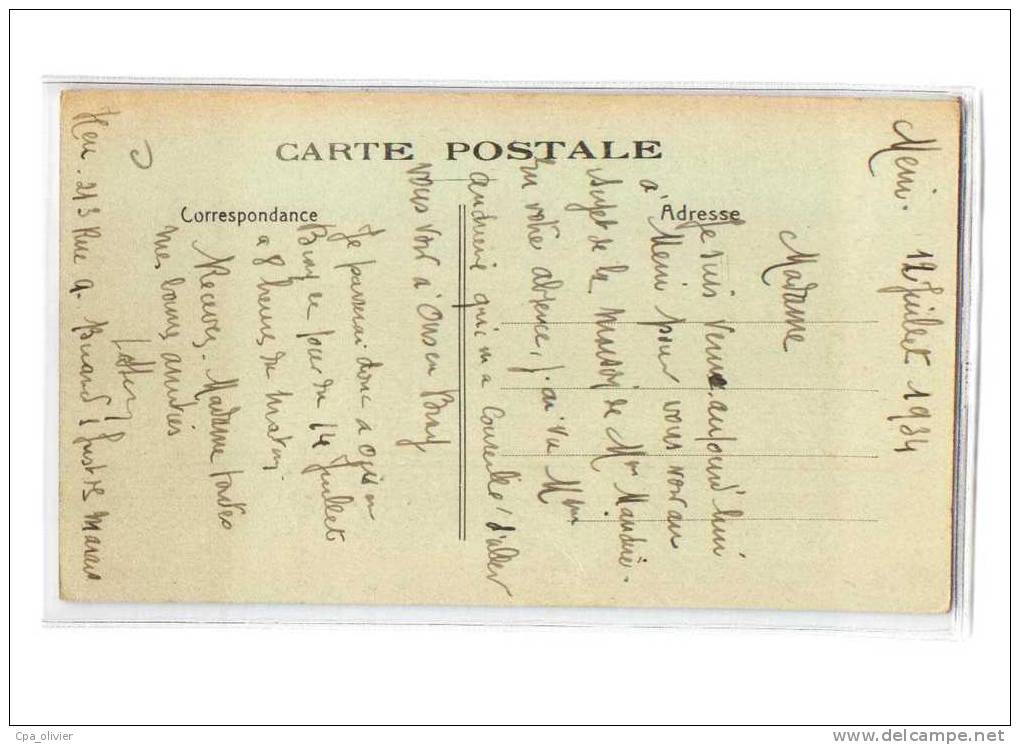 CARTE POSTALE
Correspondance
Adresse
12 Juillet 1934
Madame
Je suis venue aujourd'hui
à pour vous voir au
Sujet de la maison de Mme
En votre absence, j'ai vu Mme
qui m'a Conseillé d'aller
vous voir à Ons en Bray
Je passerai donc a Ons en
Bray le jour du 14 Juillet
a 8 heures du matin.
Recevez. Madame toutes
mes bonnes amitiés
213 Rue a.
Cpa_olivier
www.delcampe.net